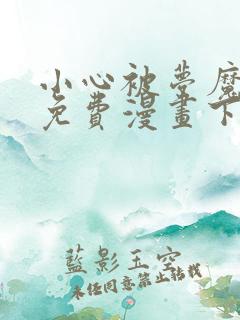 小心被夢魔
免費漫畫下
藍影玉空
未經同意禁止轉載